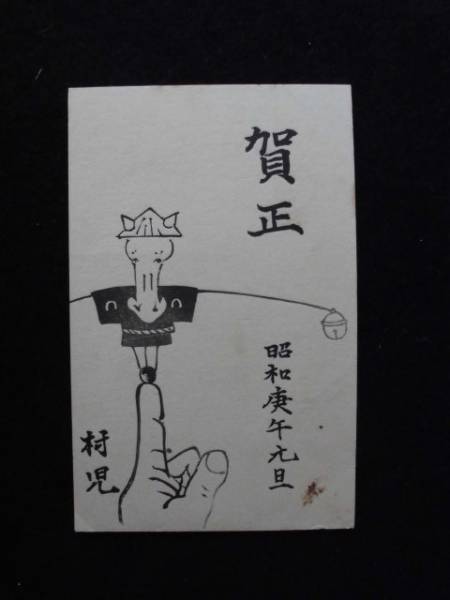 賀正
昭和庚午元旦
村児